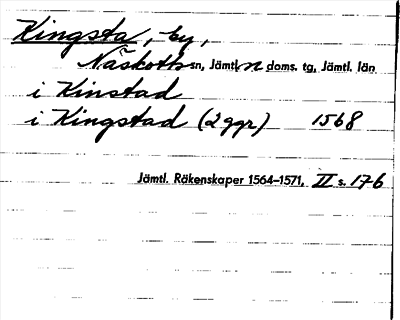 Kingsta, by,
Näskotts sn, Jämtl n doms. tg, Jämtl. län
i Kinstad
i Kingstad (2 ggr) 1568
Jämtl. Räkenskaper 1564-1571, II s. 176